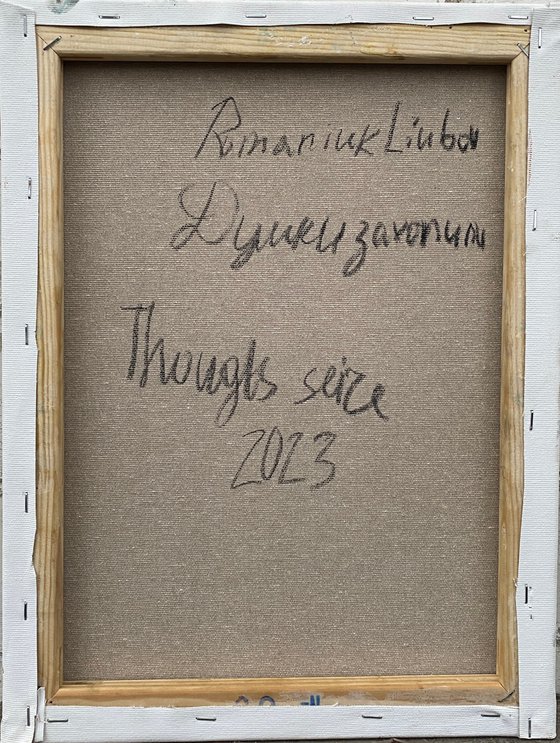 Romaniuk Liubov
Думки захопили
Thougts seize
2023